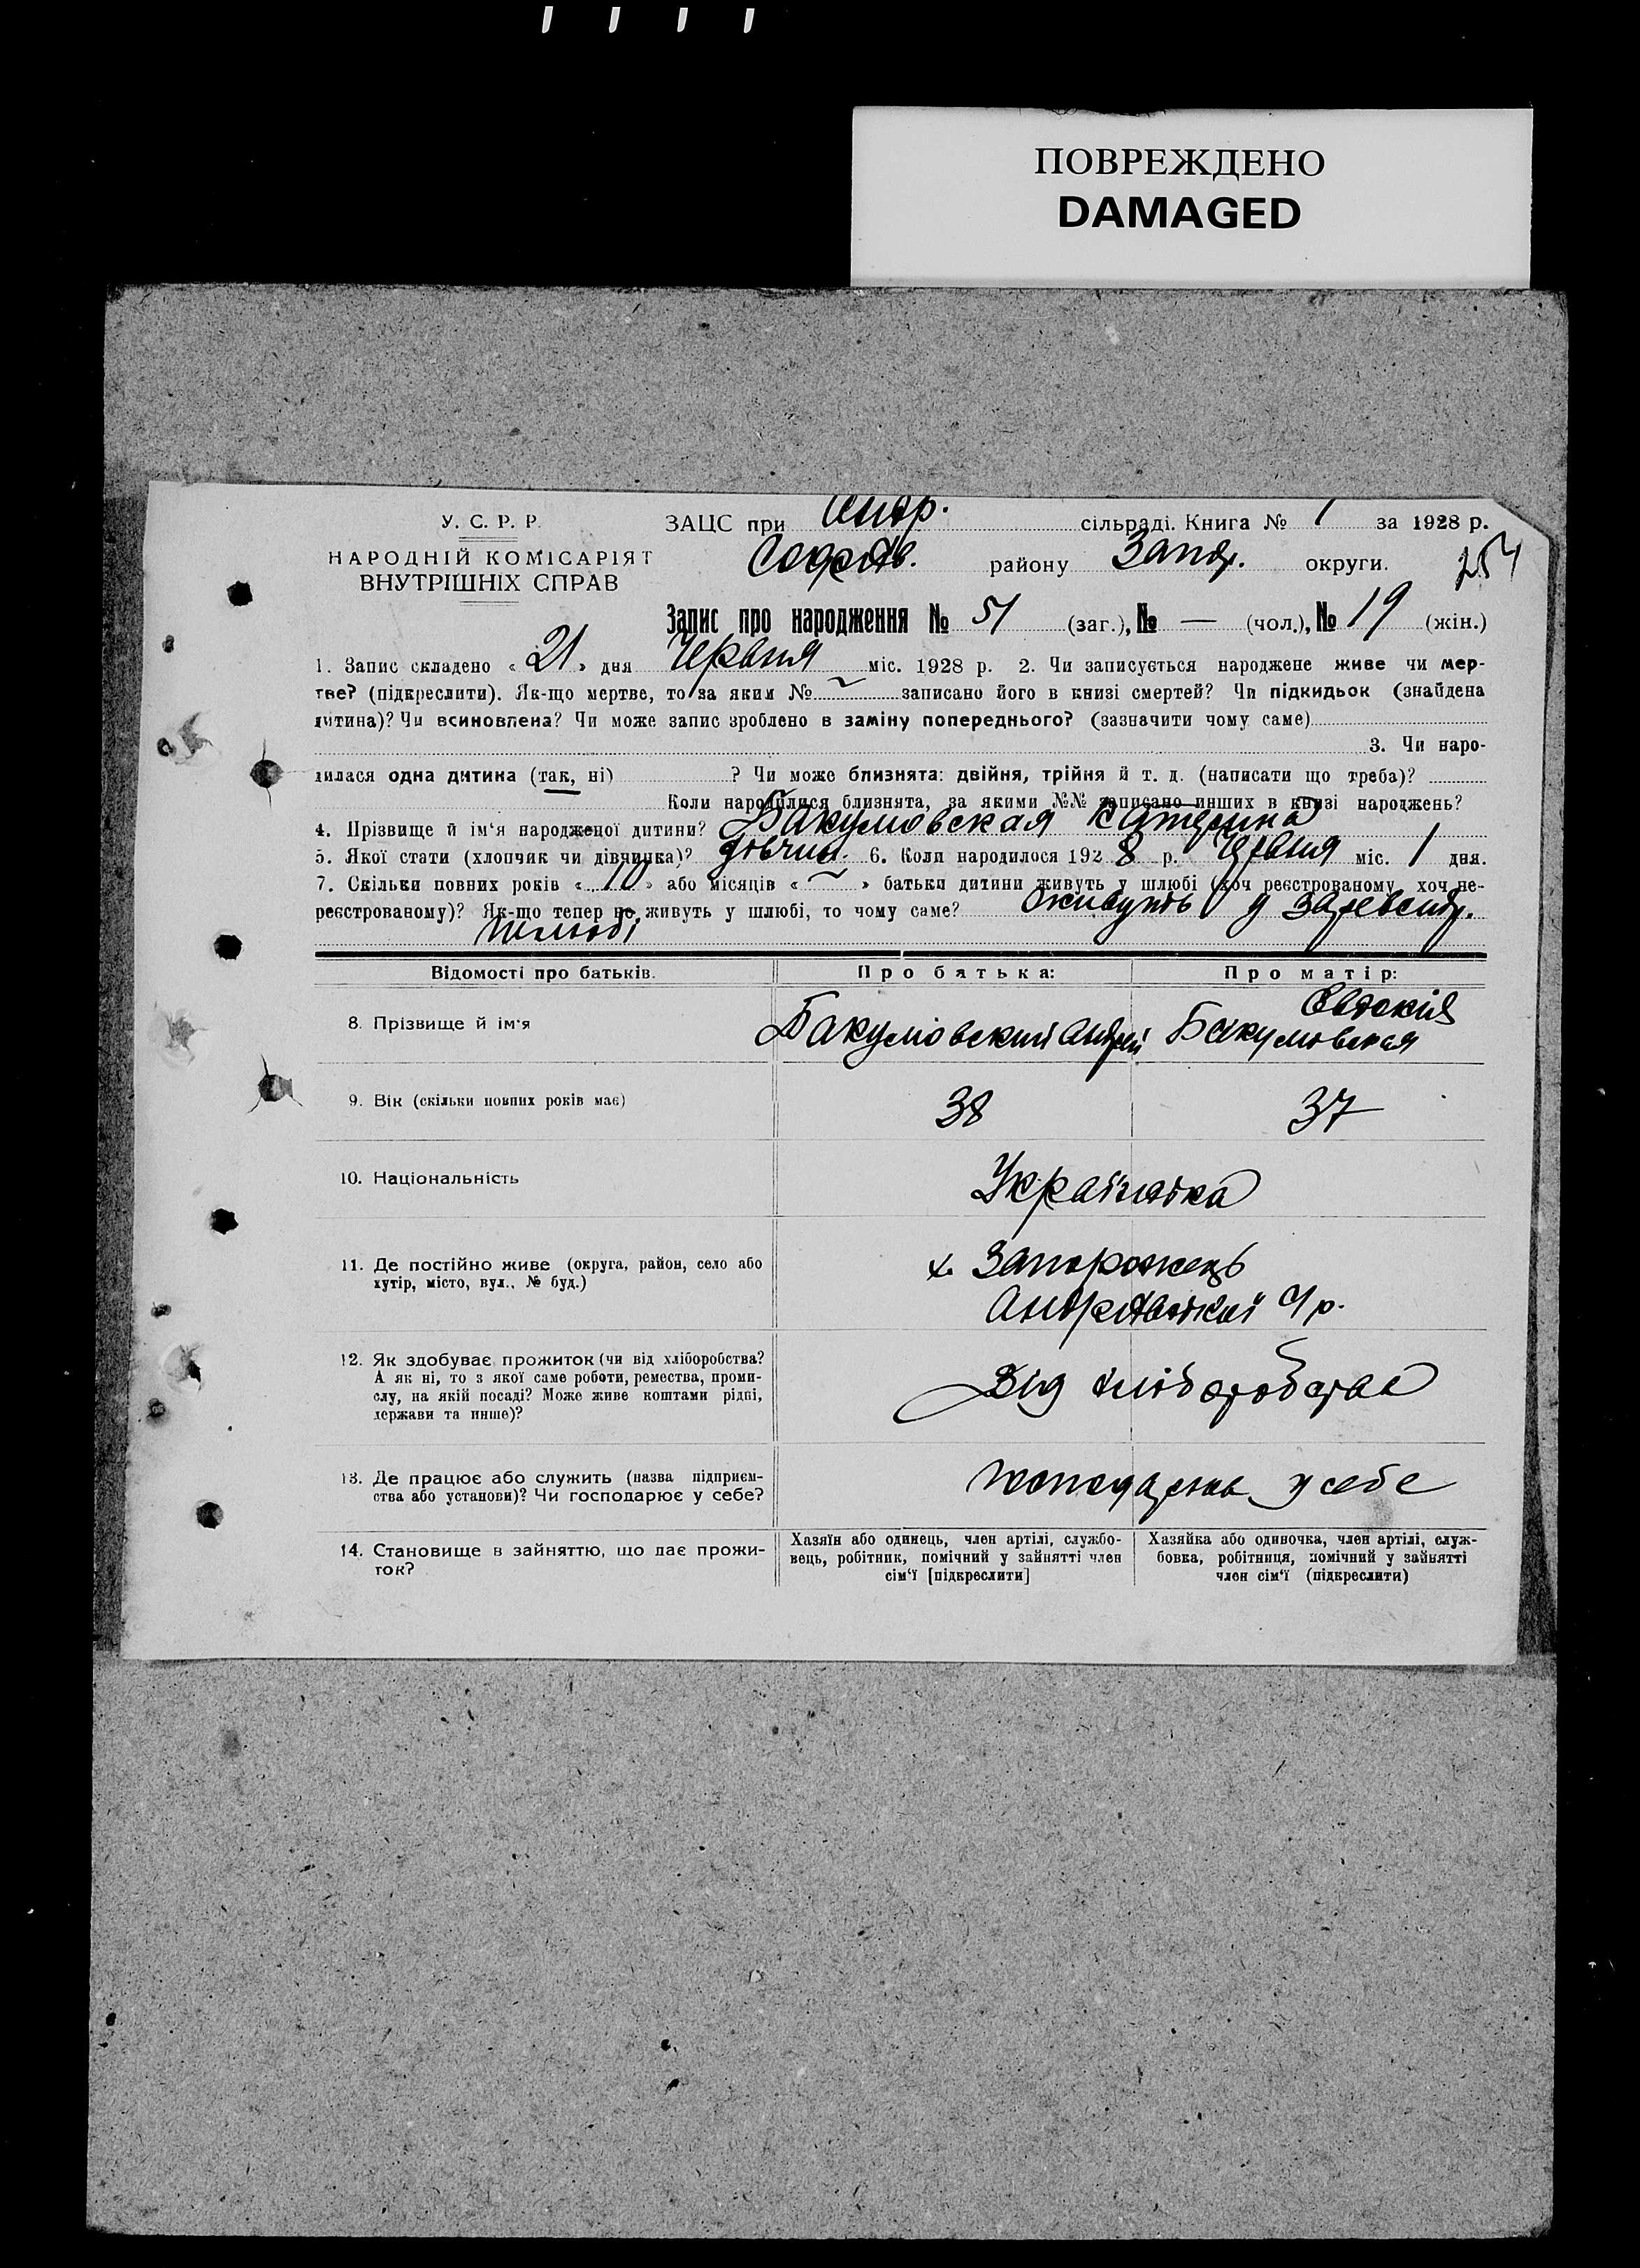 ПОВРЕЖДЕНО
DAMAGED
У. С. Р. Р.
НАРОДНІЙ КОМІСАРІЯТ
ВНУТРІШНІХ СПРАВ
ЗАЦС при Андр. сільраді. Книга № 1 за 1928 р.
Софіїв. району Запор. округи.
254
Запис про народження № 51 (заг.), № — (чол.), № 19 (жін.)
1. Запис складено « 21 » дня Червня міс. 1928 р. 2. Чи записується народжене живе чи мер-
тве? (підкреслити). Як-що мертве, то за яким № записано його в книзі смертей? Чи підкидьок (знайдена
дитина)? Чи всиновлена? Чи може запис зроблено в заміну попереднього? (зазначити чому саме)
3. Чи наро-
дилася одна дитина (так, ні) ? Чи може близнята: двійня, трійня й т. д. (написати що треба)?
Коли народилися близнята, за якими №№ записано инших в книзі народжень?
4. Прізвище й ім'я народженої дитини? Бакумовская Катерина
5. Якої стати (хлопчик чи дівчинка)? дівчин. 6. Коли народилося 192 8 р. Червня міс. 1 дня.
7. Скільки повних років « » або місяців « » батьки дитини живуть у шлюбі (хоч реєстрованому, хоч не-
реєстрованому)? Як-що тепер не живуть у шлюбі, то чому саме? живуть у
шлюбі
Відомості про батьків. Про батька: Про матір:
8. Прізвище й ім'я Бакумовский Андрей Бакумовская Евдокия
9. Вік (скільки повних років має) 38 37
10. Національність Українка
11. Де постійно живе (округа, район, село або
хутір, місто, вул., № буд.)
х. Запорожець
Андріївської с/р.
12. Як здобуває прожиток (чи від хліборобства?
А як ні, то з якої саме роботи, ремества, проми-
слу, на якій посаді? Може живе коштами рідні,
держави та инше)?
Від хліборобства
13. Де працює або служить (назва підприєм-
ства або установи)? Чи господарює у себе?
у себе
14. Становище в зайняттю, що дає прожи-
ток?
Хазяїн або одинець, член артілі, службо-
вець, робітник, помічний у зайнятті член
сім'ї [підкреслити]
Хазяйка або одиночка, член артілі, служ-
бовка, робітниця, помічний у зайнятті
член сім'ї (підкреслити)